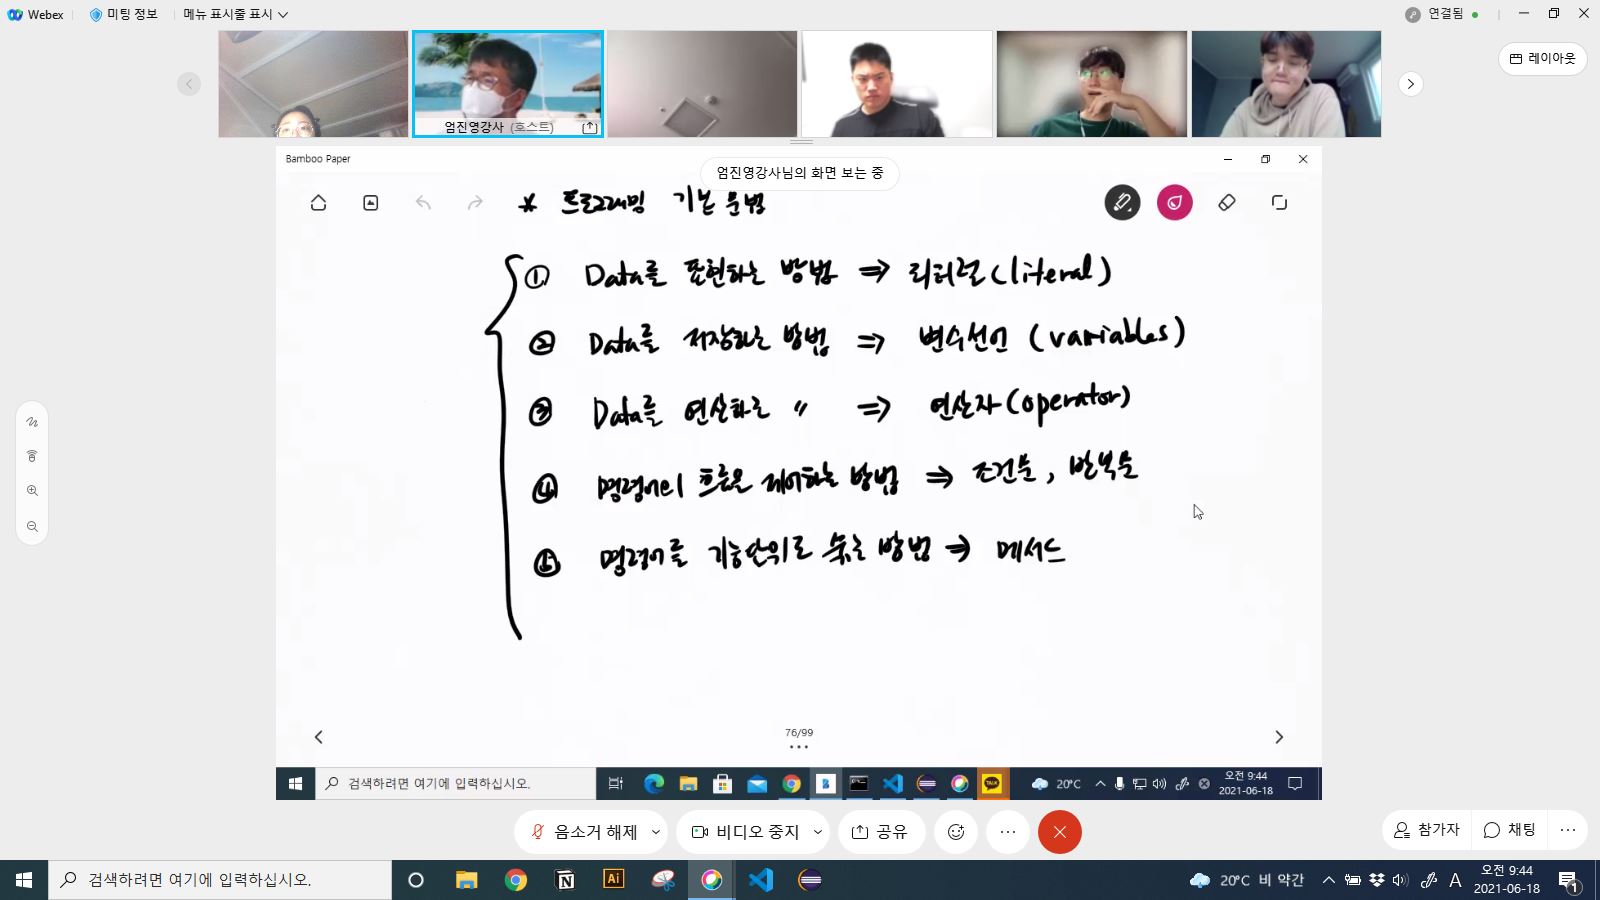 Webex 미팅 정보 메뉴 표시줄 표시 연결됨
레이아웃
엄진영강사 (호스트)
Bamboo Paper
엄진영강사님의 화면 보는 중
* 프로그래밍 기본 문법
① Data를 표현하는 방법 ⇒ 리터럴(literal)
② Data를 저장하는 방법 ⇒ 변수선언 (variables)
③ Data를 연산하는 〃 ⇒ 연산자(operator)
④ 명령어의 흐름을 제어하는 방법 ⇒ 조건문, 반복문
⑤ 명령어를 기능단위로 묶는 방법 ⇒ 메서드
76/99
검색하려면 여기에 입력하십시오.
TALK
20°C
오전 9:44
2021-06-18
음소거 해제 비디오 중지 공유 참가자 채팅
검색하려면 여기에 입력하십시오.
Ai
20°C 비 약간
A
오전 9:44
2021-06-18
1